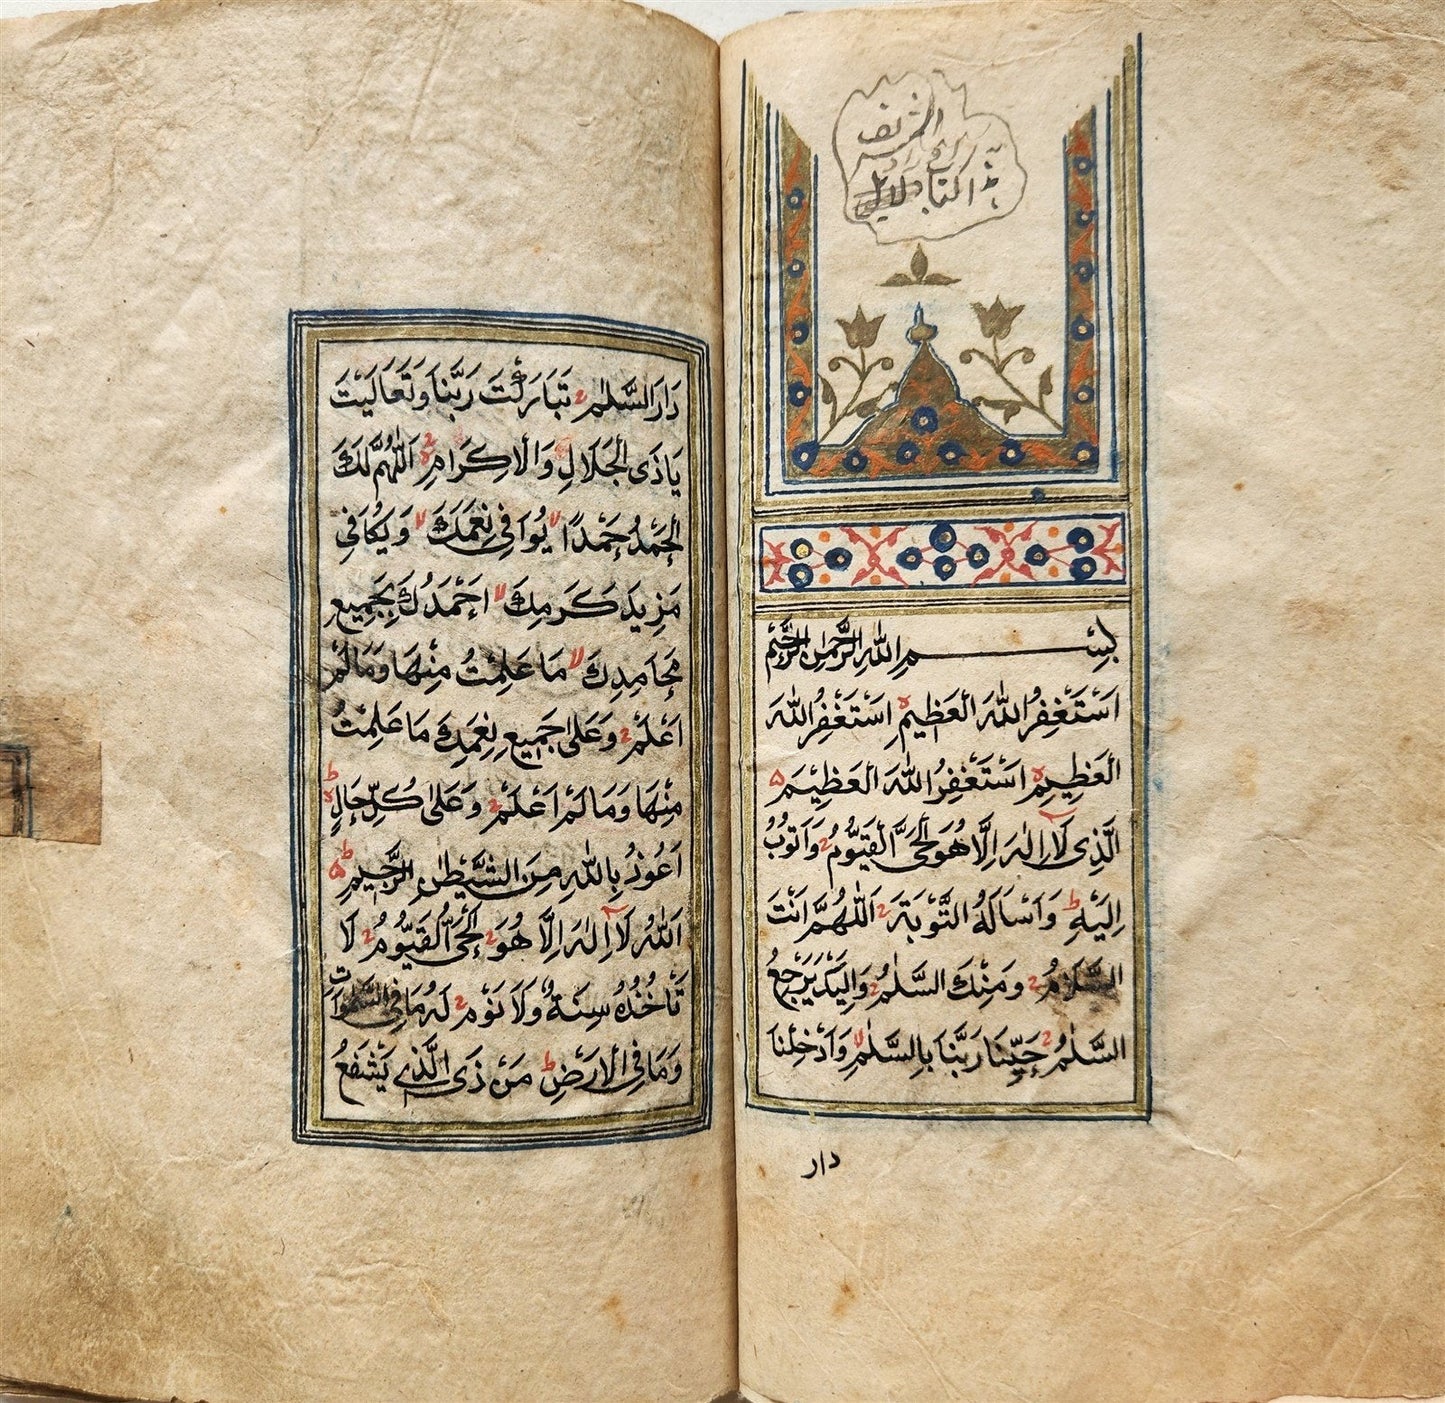 الشريف
هذا كتاب دلايل
بِسْمِ اللّٰهِ الرَّحْمٰنِ الرَّحِيْمِ
اَسْتَغْفِرُ اللّٰهَ الْعَظِيْمِ اَسْتَغْفِرُ اللّٰهَ
الْعَظِيْمِ اَسْتَغْفِرُ اللّٰهَ الْعَظِيْمَ
الَّذِى لَا اِلٰهَ اِلَّا هُوَ الْحَىَّ الْقَيُّوْمُ وَاَتُوْبُ
اِلَيْهِ وَاَسْاَلُهُ التَّوْبَةَ اَللّٰهُمَّ اَنْتَ
السَّلَامُ وَمِنْكَ السَّلٰمُ وَاِلَيْكَ يَرْجِعُ
السَّلٰمُ حَيِّنَا رَبَّنَا بِالسَّلٰمِ وَاَدْخِلْنَا
دار
دَارَ السَّلٰمِ تَبَارَكْتَ رَبَّنَا وَتَعَالَيْتَ
يَا ذَى الْجَلَالِ وَالْاِكْرَامِ اَللّٰهُمَّ لَكَ
الْحَمْدُ حَمْدًا يُوَافِى نِعَمَكَ وَيُكَافِى
مَزِيدَ كَرَمِكَ اَحْمَدُكَ بِجَمِيعِ
مَحَامِدِكَ مَا عَلِمْتُ مِنْهَا وَمَالَمْ
اَعْلَمْ وَعَلٰى جَمِيعِ نِعَمِكَ مَا عَلِمْتُ
مِنْهَا وَمَا لَمْ اَعْلَمْ وَعَلٰى كُلِّ حَالٍ
اَعُوْذُ بِاللّٰهِ مِنَ الشَّيْطٰنِ الرَّجِيْمِ
اَللّٰهُ لَا اِلٰهَ اِلَّا هُوَ الْحَىُّ الْقَيُّوْمُ لَا
تَاْخُذُهُ سِنَةٌ وَلَا نَوْمٌ لَهُ مَا فِى السَّمٰوَاتِ
وَمَا فِى الْاَرْضِ مَنْ ذَى الَّذِى يَشْفَعُ